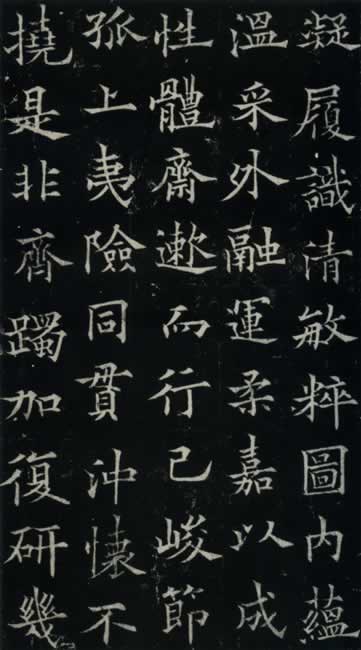 凝履識清敏粹圖內蘊
溫采外融運柔嘉以成
性體齋遬而行己峻節
孤上夷險同貫沖懷不
撓是非齊躅加復研幾